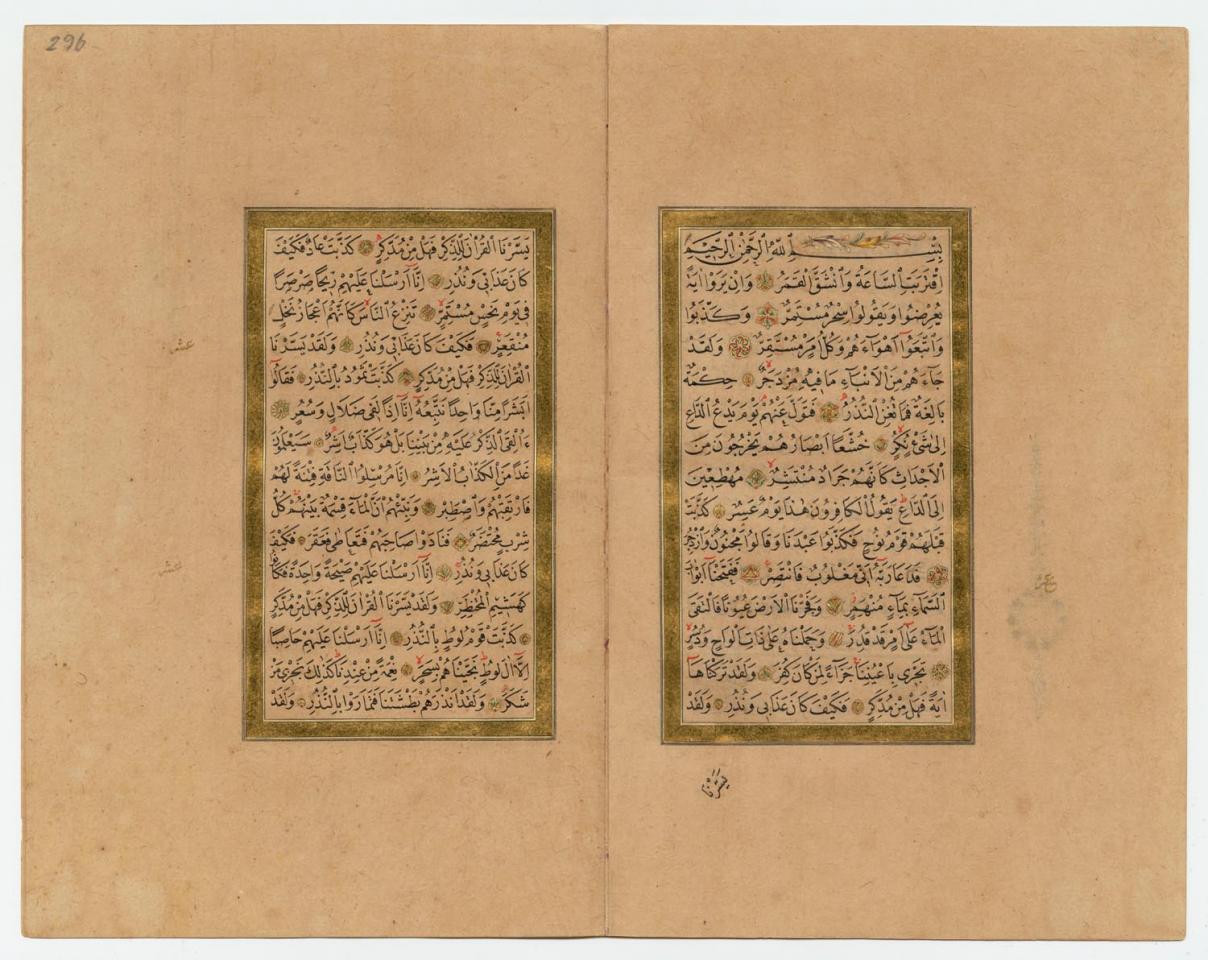 296
بِسْمِ اللّٰهِ الرَّحْمٰنِ الرَّحِيمِ
اِقْتَرَبَتِ السَّاعَةُ وَانْشَقَّ الْقَمَرُ وَاِنْ يَرَوْا اٰيَةً
يُعْرِضُوا وَيَقُولُوا سِحْرٌ مُسْتَمِرٌّ وَكَذَّبُوا
وَاتَّبَعُوا اَهْوَاءَهُمْ وَكُلُّ اَمْرٍ مُسْتَقِرٌّ وَلَقَدْ
جَاءَهُمْ مِنَ الْاَنْبَاءِ مَا فِيهِ مُزْدَجَرٌ حِكْمَةٌ
بَالِغَةٌ فَمَا تُغْنِ النُّذُرُ فَتَوَلَّ عَنْهُمْ يَوْمَ يَدْعُ الدَّاعِ
اِلٰى شَيْءٍ نُكُرٍ خُشَّعًا اَبْصَارُهُمْ يَخْرُجُونَ مِنَ
الْاَجْدَاثِ كَاَنَّهُمْ جَرَادٌ مُنْتَشِرٌ مُهْطِعِينَ
اِلَى الدَّاعِ يَقُولُ الْكَافِرُونَ هٰذَا يَوْمٌ عَسِرٌ كَذَّبَتْ
قَبْلَهُمْ قَوْمُ نُوحٍ فَكَذَّبُوا عَبْدَنَا وَقَالُوا مَجْنُونٌ وَازْدُجِرَ
فَدَعَا رَبَّهُ اَنِّي مَغْلُوبٌ فَانْتَصِرْ فَفَتَحْنَا اَبْوَابَ
السَّمَاءِ بِمَاءٍ مُنْهَمِرٍ وَفَجَّرْنَا الْاَرْضَ عُيُونًا فَالْتَقَى
الْمَاءُ عَلٰى اَمْرٍ قَدْ قُدِرَ وَحَمَلْنَاهُ عَلٰى ذَاتِ اَلْوَاحٍ وَدُسُرٍ
تَجْرِي بِاَعْيُنِنَا جَزَاءً لِمَنْ كَانَ كُفِرَ وَلَقَدْ تَرَكْنَاهَا
اٰيَةً فَهَلْ مِنْ مُدَّكِرٍ فَكَيْفَ كَانَ عَذَابِي وَنُذُرِ وَلَقَدْ
يَسَّرْنَا
يَسَّرْنَا الْقُرْاٰنَ لِلذِّكْرِ فَهَلْ مِنْ مُدَّكِرٍ كَذَّبَتْ عَادٌ فَكَيْفَ
كَانَ عَذَابِي وَنُذُرِ اِنَّا اَرْسَلْنَا عَلَيْهِمْ رِيحًا صَرْصَرًا
فِي يَوْمِ نَحْسٍ مُسْتَمِرٍّ تَنْزِعُ النَّاسَ كَاَنَّهُمْ اَعْجَازُ نَخْلٍ
مُنْقَعِرٍ فَكَيْفَ كَانَ عَذَابِي وَنُذُرِ وَلَقَدْ يَسَّرْنَا
الْقُرْاٰنَ لِلذِّكْرِ فَهَلْ مِنْ مُدَّكِرٍ كَذَّبَتْ ثَمُودُ بِالنُّذُرِ فَقَالُوا
اَبَشَرًا مِنَّا وَاحِدًا نَتَّبِعُهُ اِنَّا اِذًا لَفِي ضَلَالٍ وَسُعُرٍ
ءَاُلْقِيَ الذِّكْرُ عَلَيْهِ مِنْ بَيْنِنَا بَلْ هُوَ كَذَّابٌ اَشِرٌ سَيَعْلَمُونَ
غَدًا مَنِ الْكَذَّابُ الْاَشِرُ اِنَّا مُرْسِلُوا النَّاقَةِ فِتْنَةً لَهُمْ
فَارْتَقِبْهُمْ وَاصْطَبِرْ وَنَبِّئْهُمْ اَنَّ الْمَاءَ قِسْمَةٌ بَيْنَهُمْ كُلُّ
شِرْبٍ مُحْتَضَرٌ فَنَادَوْا صَاحِبَهُمْ فَتَعَاطٰى فَعَقَرَ فَكَيْفَ
كَانَ عَذَابِي وَنُذُرِ اِنَّا اَرْسَلْنَا عَلَيْهِمْ صَيْحَةً وَاحِدَةً فَكَانُوا
كَهَشِيمِ الْمُحْتَظِرِ وَلَقَدْ يَسَّرْنَا الْقُرْاٰنَ لِلذِّكْرِ فَهَلْ مِنْ مُدَّكِرٍ
كَذَّبَتْ قَوْمُ لُوطٍ بِالنُّذُرِ اِنَّا اَرْسَلْنَا عَلَيْهِمْ حَاصِبًا
اِلَّا اٰلَ لُوطٍ نَجَّيْنَاهُمْ بِسَحَرٍ نِعْمَةً مِنْ عِنْدِنَا كَذٰلِكَ نَجْزِي مَنْ
شَكَرَ وَلَقَدْ اَنْذَرَهُمْ بَطْشَتَنَا فَتَمَارَوْا بِالنُّذُرِ وَلَقَدْ